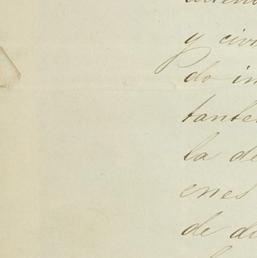 y civi
do in
tante
la de
enes
de di